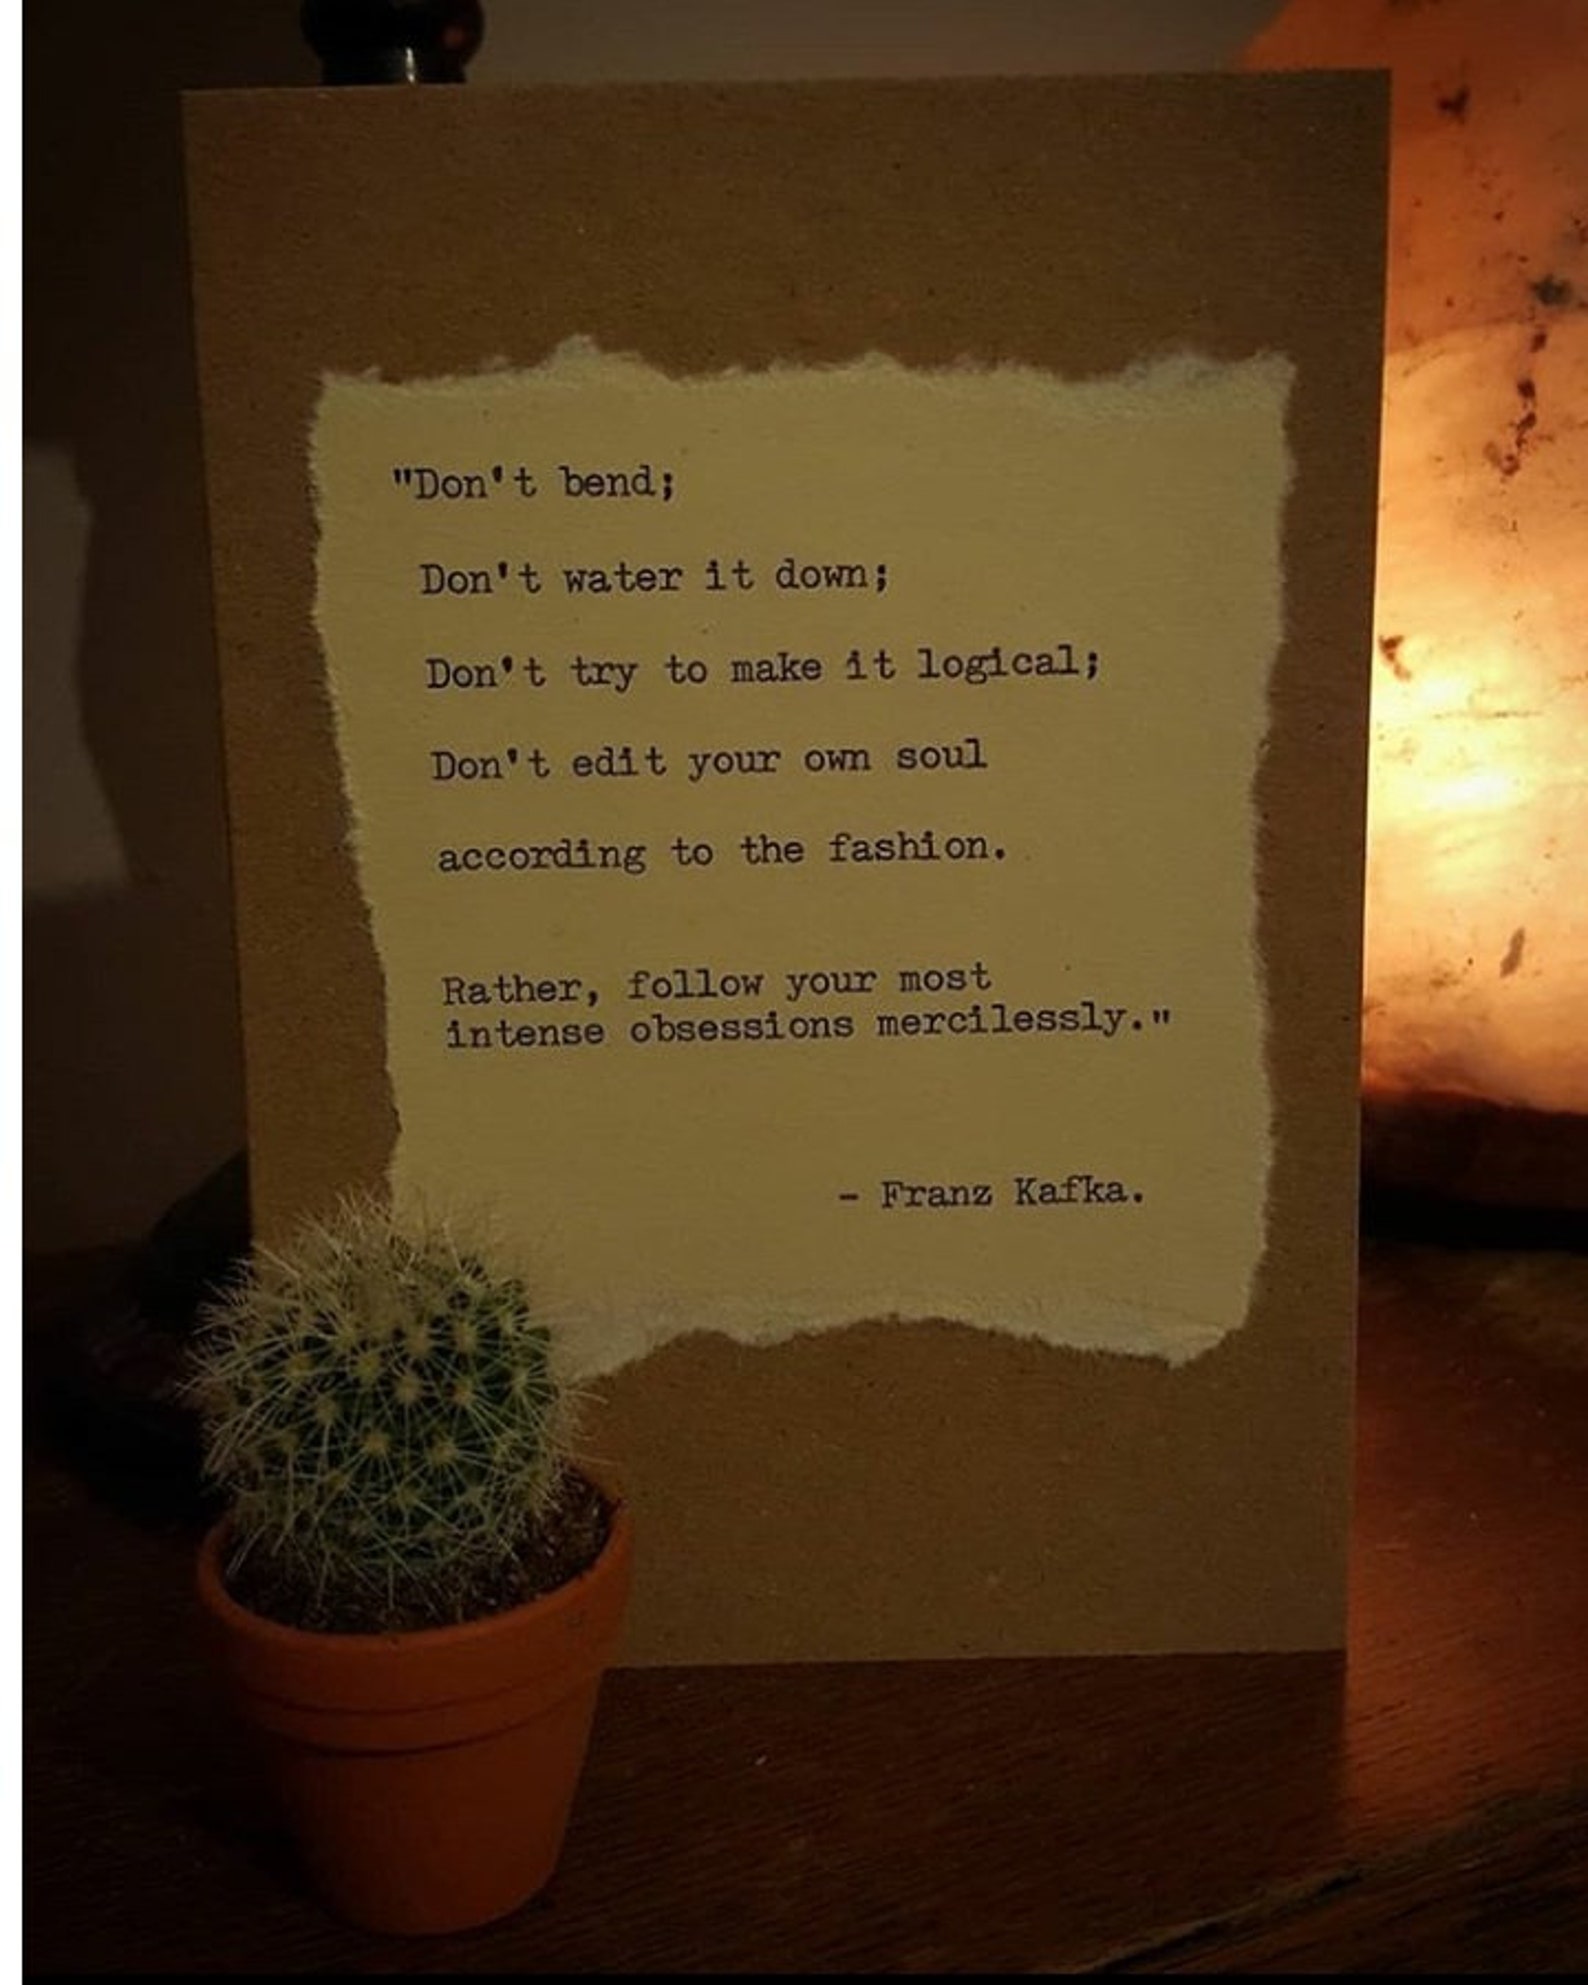 "Don't bend;
Don't water it down;
Don't try to make it logical;
Don't edit your own soul
according to the fashion.
Rather, follow your most
intense obsessions mercilessly."
- Franz Kafka.